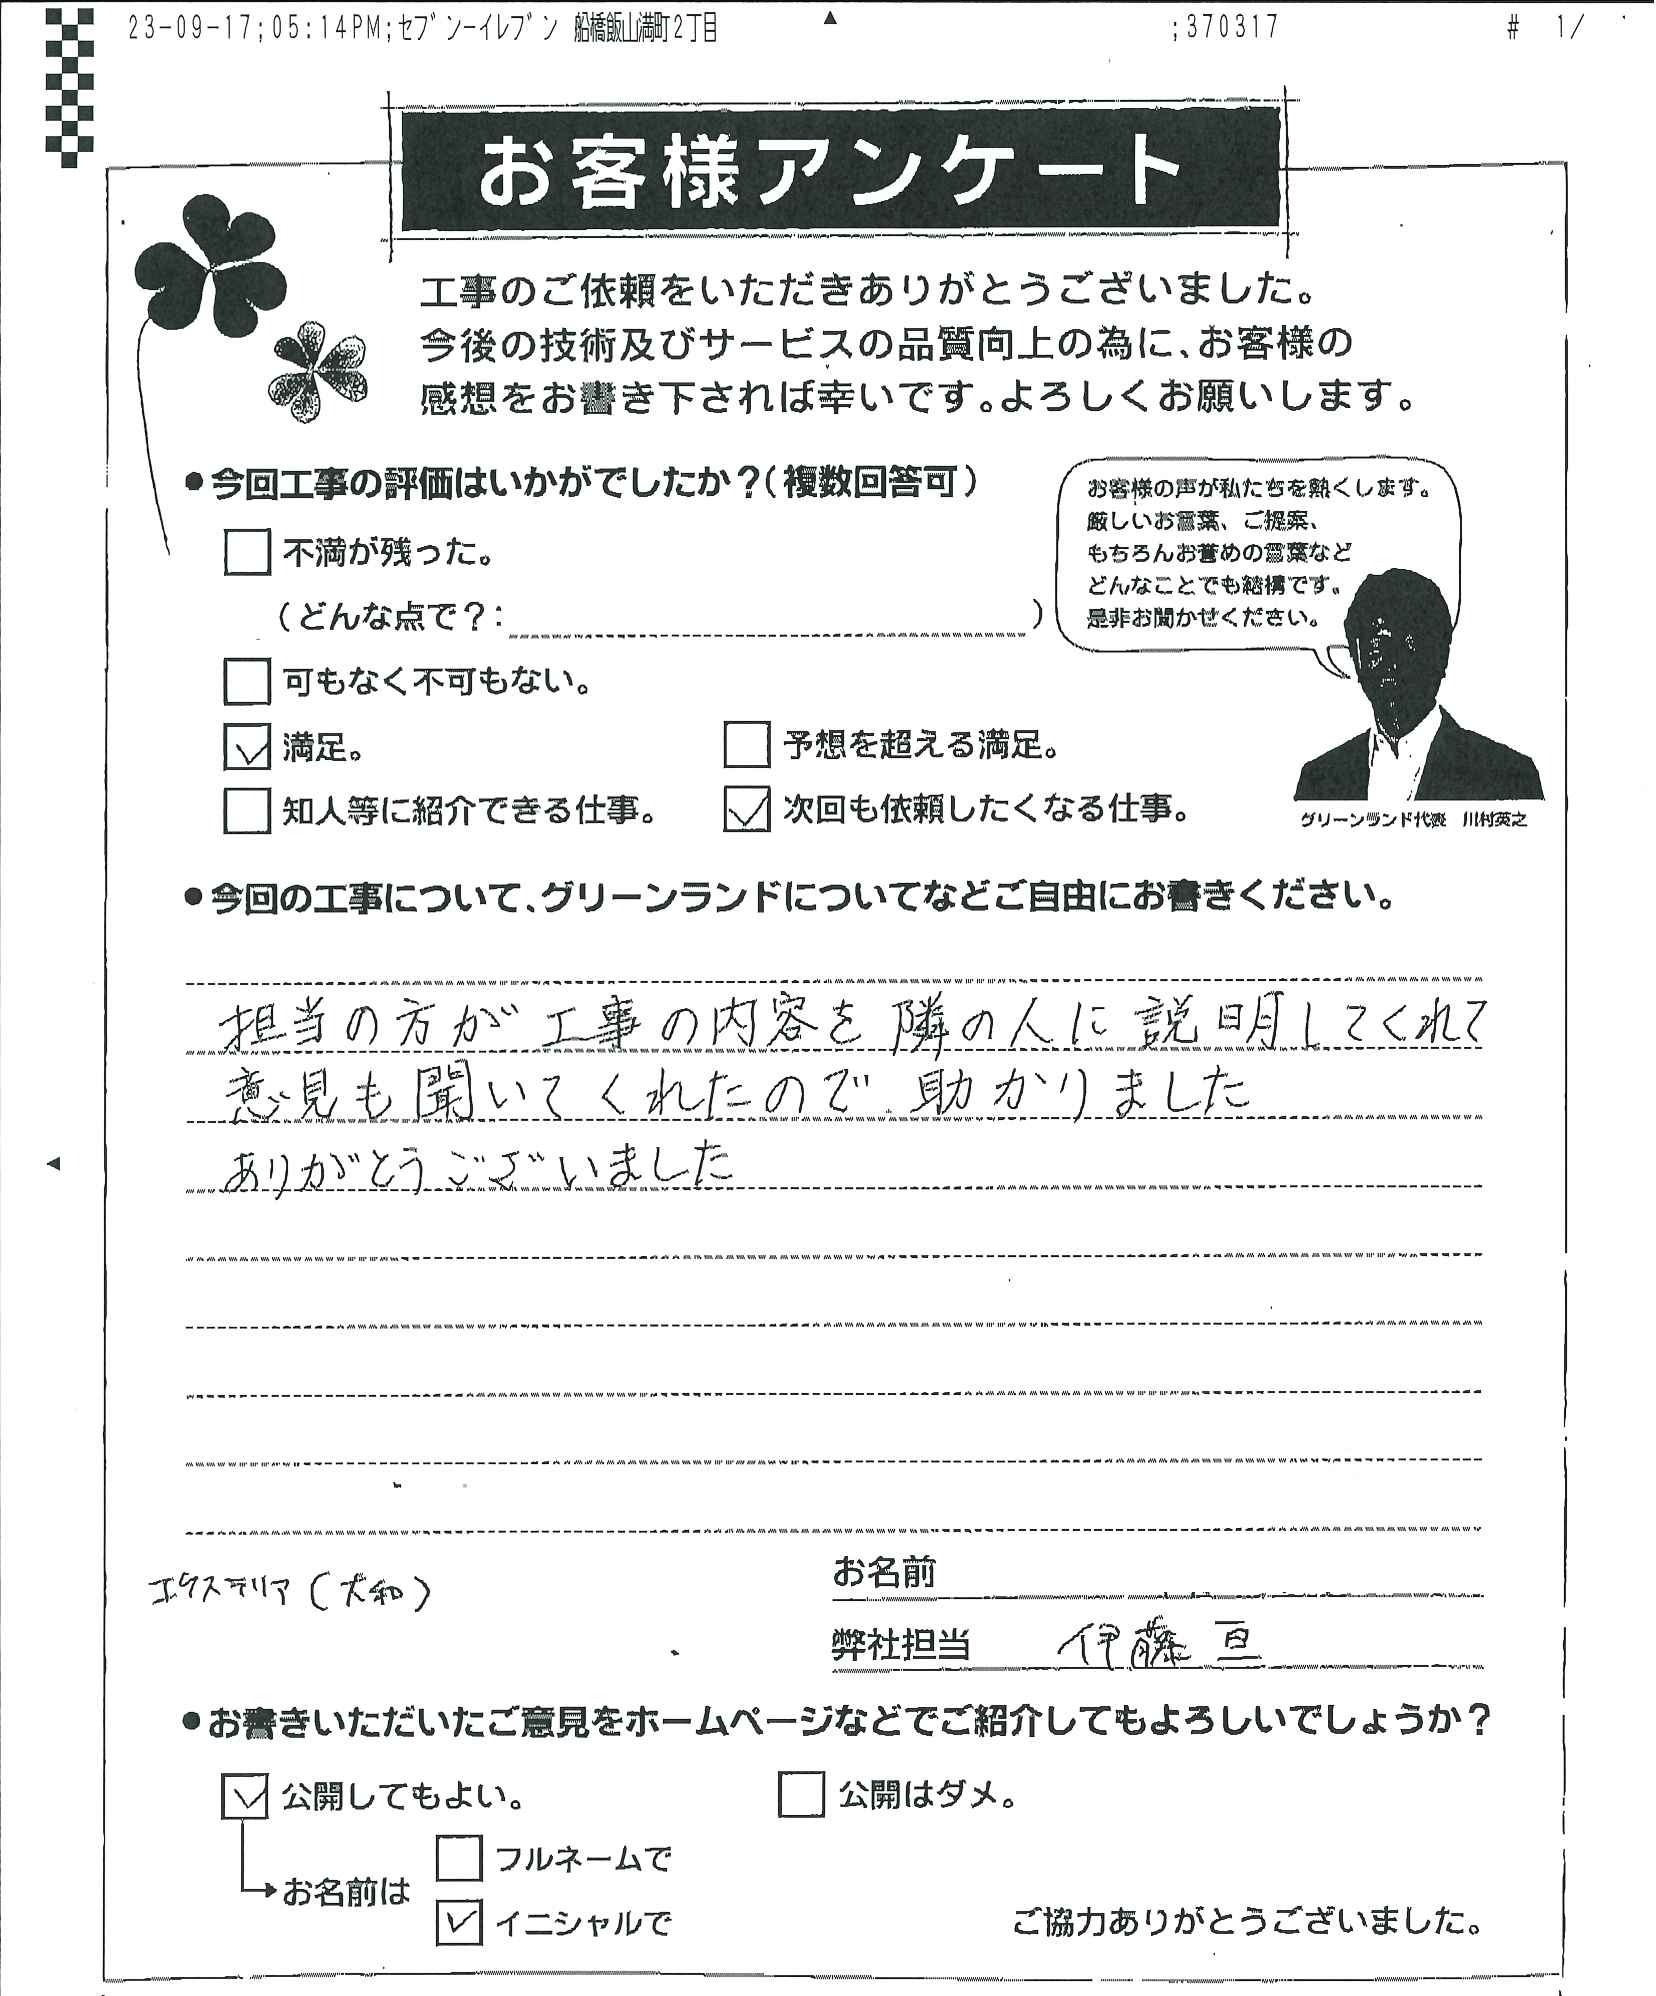 23-09-17;05:14PM;ｾﾌﾞﾝ-ｲﾚﾌﾞﾝ 船橋飯山満町2丁目 ;370317 # 1/
お客様アンケート
工事のご依頼をいただきありがとうございました。
今後の技術及びサービスの品質向上の為に、お客様の
感想をお書き下されば幸いです。よろしくお願いします。
●今回工事の評価はいかがでしたか？（複数回答可）
お客様の声が私たちを熱くします。
厳しいお言葉、ご提案、
もちろんお誉めの言葉など
どんなことでも結構です。
是非お聞かせください。
不満が残った。
（どんな点で？： ）
可もなく不可もない。
満足。 予想を超える満足。
知人等に紹介できる仕事。 次回も依頼したくなる仕事。
グリーンランド代表 川村英之
●今回の工事について、グリーンランドについてなどご自由にお書きください。
担当の方が工事の内容を隣の人に説明してくれて
意見も聞いてくれたので助かりました
ありがとうございました
お名前
エクステリア（大和）
弊社担当 伊藤 亘
●お書きいただいたご意見をホームページなどでご紹介してもよろしいでしょうか？
公開してもよい。 公開はダメ。
フルネームで
お名前は
イニシャルで
ご協力ありがとうございました。